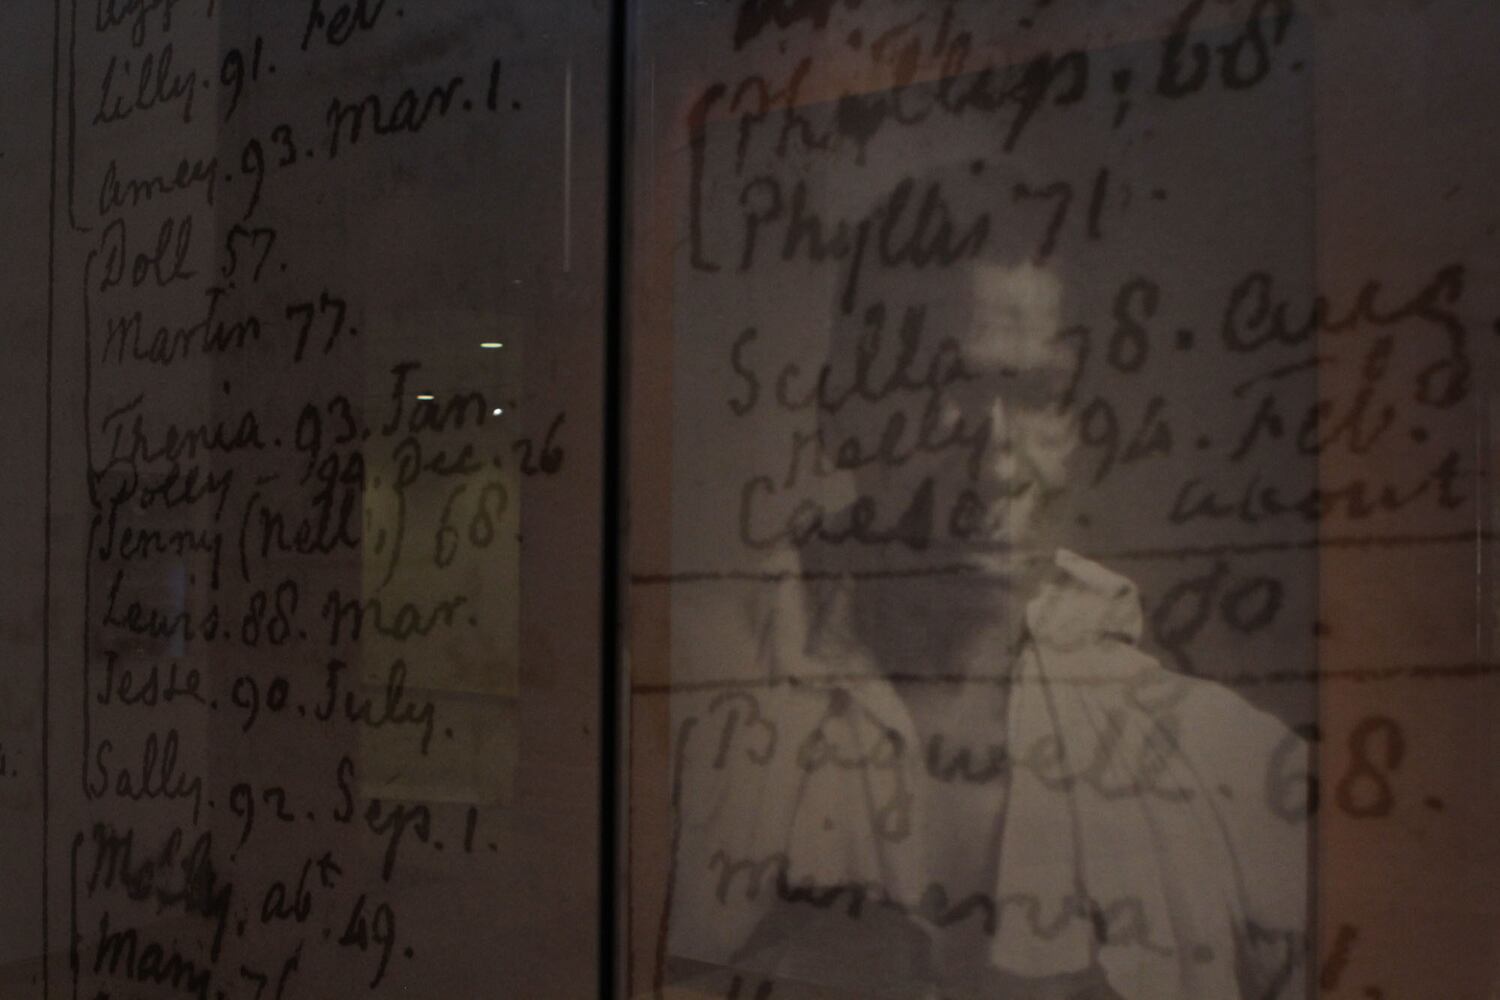 Lilly. 91. Feb.
Amey. 93. Mar. 1.
Doll 57.
Martin 77.
Thenia. 93. Jan.
Polly - '94. Dec. 26
Jenny (Nell's) 68.
Lewis. 88. Mar.
Jesse. 90. July.
Sally. 92. Sep. 1.
Molly. abt 49.
Mary.
68.
Phyllis 71.
Scilla. 78. Aug.
Nelly. 94. Feb. 8
Caesar. about
50.
Bagwell. 68.
Minerva. 71.